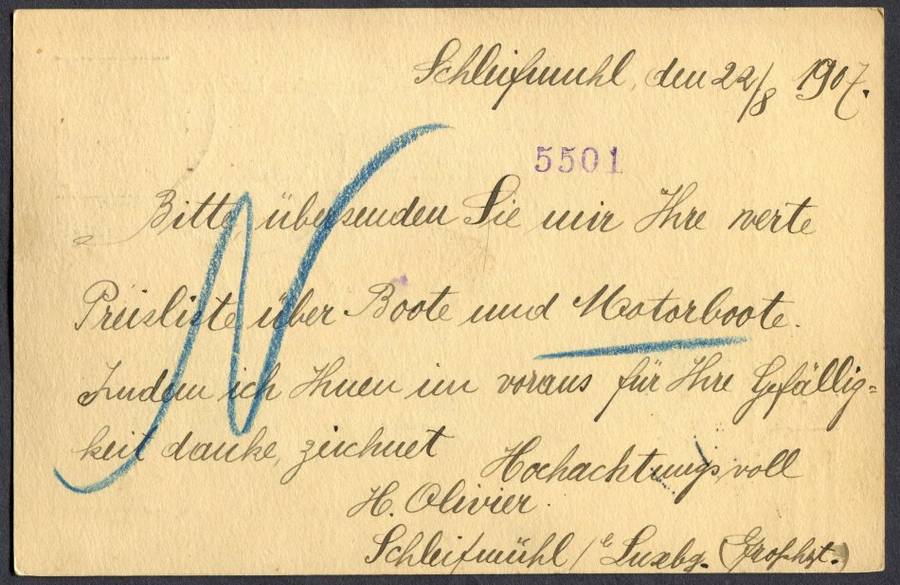 Schleifmühl, den 22/8 1907.
5501
Bitte übersenden Sie mir Ihre werte
Preisliste über Boote und Motorboote.
Indem ich Ihnen im voraus für Ihre Gefällig=
keit danke, zeichnet
Hochachtungsvoll
H. Olivier.
Schleifmühl / Luxbg. (Grophzt.)
N